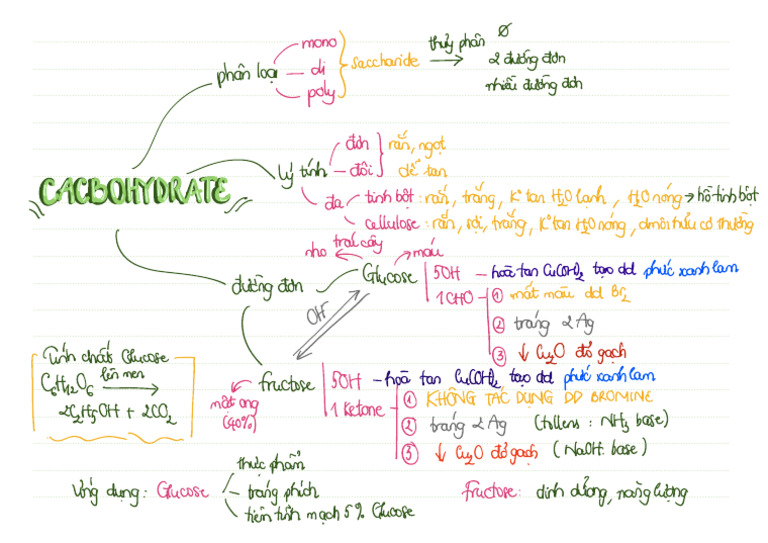 CACBOHYDRATE
phân loại
mono
di
poly
saccharide
thuỷ phân
∅
2 đường đơn
nhiều đường đơn
lý tính
đơn
đôi
rắn, ngọt
dễ tan
đa
tinh bột : rắn, trắng, K° tan H2O lạnh , H2O nóng → hồ tinh bột
cellulose : rắn, sợi, trắng, K° tan H2O nóng, dmôi hữu cơ thường
đường đơn
nho
trái cây
máu
Glucose
5OH – hoà tan Cu(OH)2 tạo dd phức xanh lam
1 CHO
① mất màu dd Br2
② tráng 2Ag
③ ↓ Cu2O đỏ gạch
OH-
fructose
mật ong
(40%)
5OH – hoà tan Cu(OH)2 tạo dd phức xanh lam
1 Ketone
① KHÔNG TÁC DỤNG DD BROMINE
② tráng 2Ag (tollens : NH3 base)
③ ↓ Cu2O đỏ gạch (NaOH base)
Tính chất Glucose
C6H12O6 lên men →
2C2H5OH + 2CO2
Ứng dụng : Glucose
thực phẩm
tráng phích
tiêm tĩnh mạch 5% Glucose
Fructose : dinh dưỡng, năng lượng